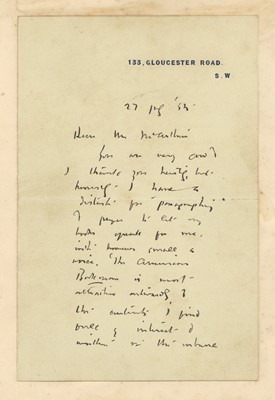 133, GLOUCESTER ROAD.
S. W
27 '93
Dear Mr McArthur
You are very good
I thank you heartily, but
honestly I have a
distaste for "paragraphing"
I prefer to let my
books speak for me,
with however small a
voice. The American
Bookman is most
attractive outwardly, &
the contents I find
full of interest &
in the